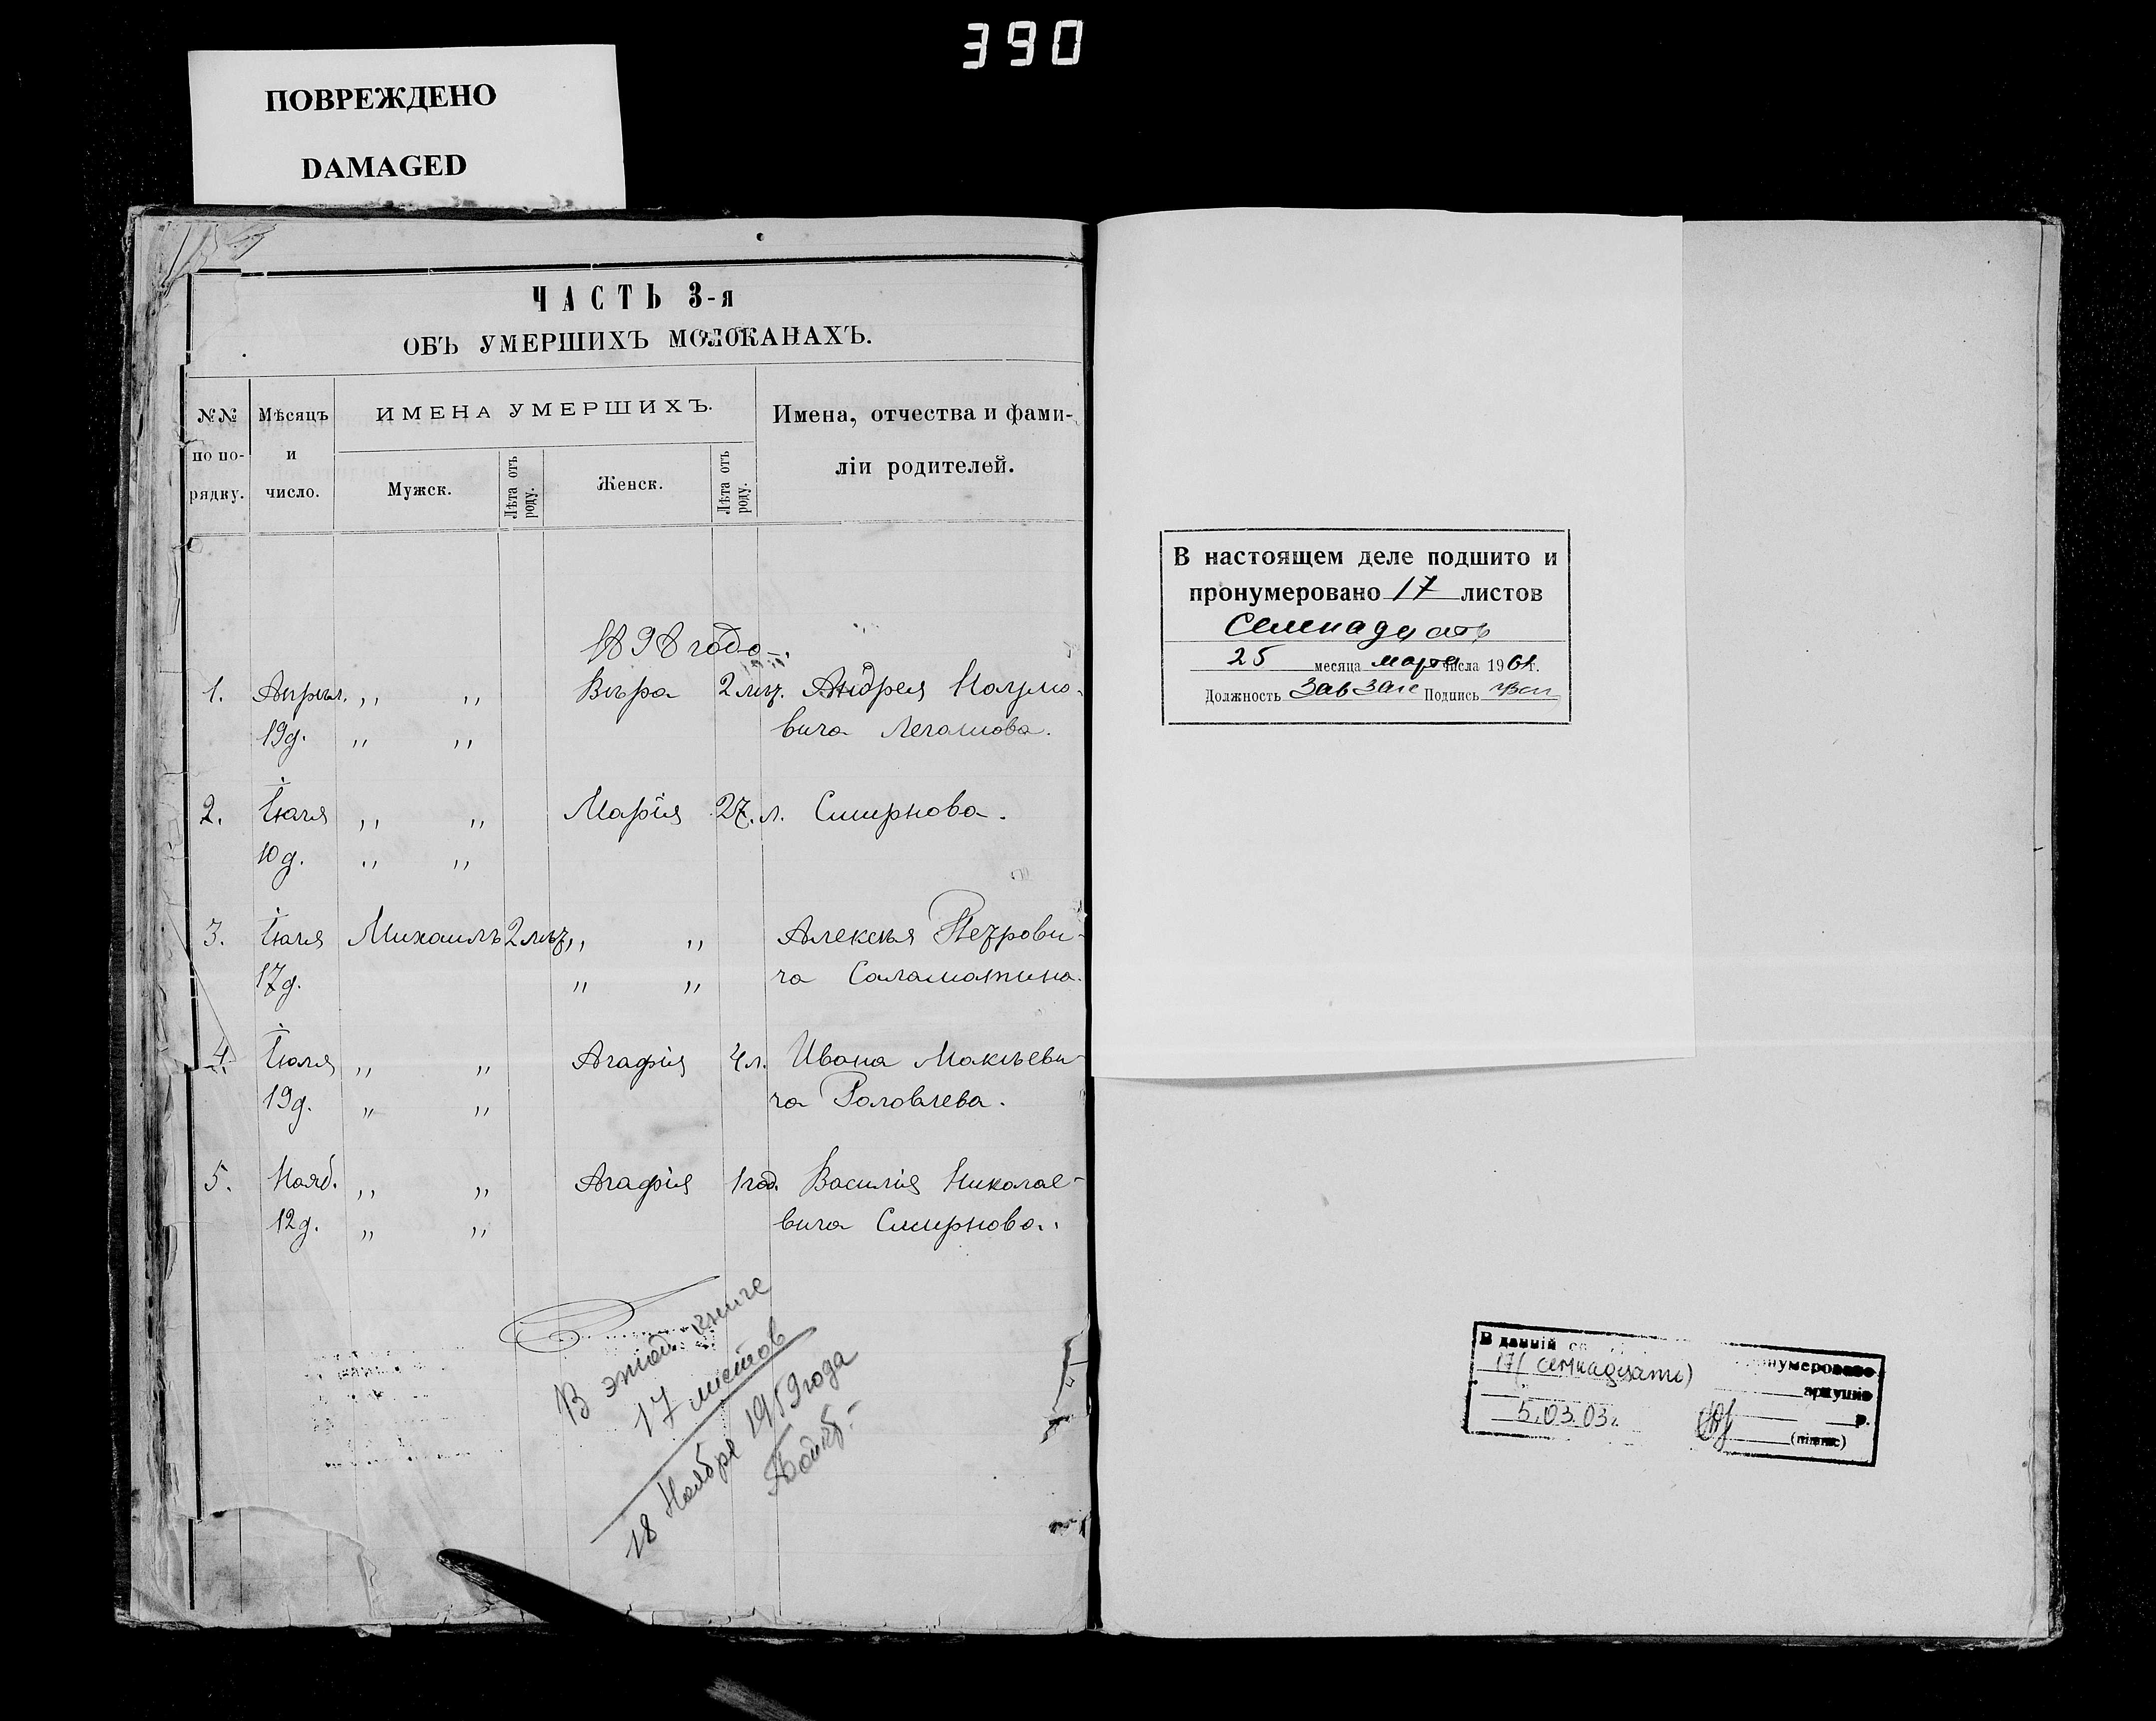 390
ПОВРЕЖДЕНО
DAMAGED
ЧАСТЬ 3-я
ОБЪ УМЕРШИХЪ МОЛОКАНАХЪ.
№№ по по-рядку.
Мѣсяцъ и число.
ИМЕНА УМЕРШИХЪ.
Мужск.
Лѣта отъ роду.
Женск.
Лѣта отъ роду.
Имена, отчества и фами-
ліи родителей.
1898 года.
1. Апрѣл. ,, ,, Вѣра 2 мѣц. Андрея Наумо-
19 д. ,, ,, вича Легашова.
2. Іюля ,, ,, Марія 27. л. Смирнова.
10 д. ,, ,,
3. Іюля Михаилъ 2 мѣц. ,, ,, Алексѣя Петрови-
17 д. ,, ,, ча Саламатина.
4. Іюля ,, ,, Агафія 4 л. Ивана Мокѣеви-
19 д. ,, ,, ча Головлева.
5. Нояб. ,, ,, Агафія 1 год. Василія Николае-
12 д. ,, ,, вича Смирнова.
В этой книге
17 листов
18 Ноября 1959 года
В настоящем деле подшито и
пронумеровано 17 листов
Семнадцать
25 месяца марта числа 1961 г.
Должность Зав Загс Подпись
В даній
пронумеровано
17 (семнадцять)
аркушів
5.03.03. р.
(підпис)